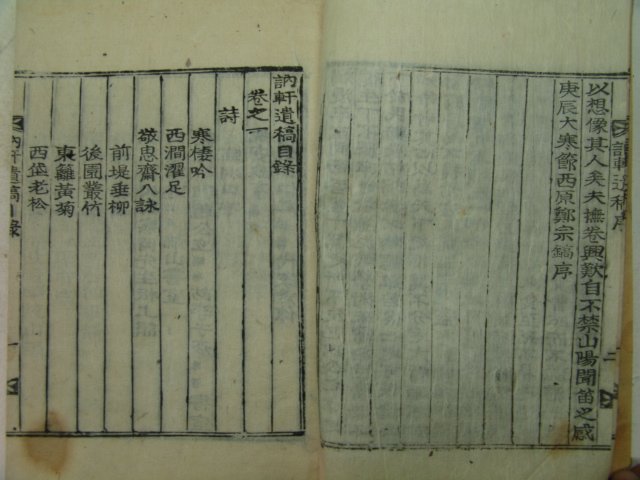 以想像其人矣夫撫卷興歎自不禁山陽聞笛之感
庚辰大寒節西原鄭宗鎬序
訥軒遺稿目錄
卷之一
詩
寒棲吟
西澗濯足
敬思齋八詠
前堤垂柳
後園叢竹
東籬黃菊
西岱老松
訥軒遺稿目錄